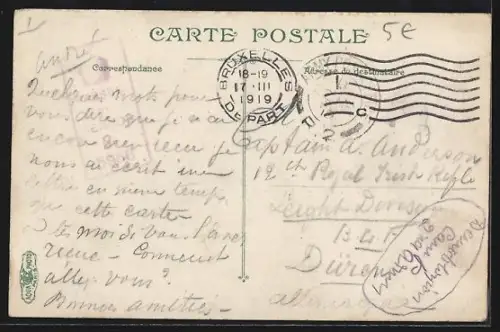 1
5€
CARTE POSTALE
Correspondance
Adresse du destinataire
BRUXELLES
18-19
17·III
1919
DEPART
André
Quelques mots pour
vous dire que je n'ai
encore rien reçu je
vous ai écrit une
lettre en même temps
que cette carte
vous
Comment
allez vous?
Bonnes amitiés
Captain A. Anderson
12th Royal Irish Rifles
Leight Division
B.E.F
Düren
Allemagne
Demolition
Camp